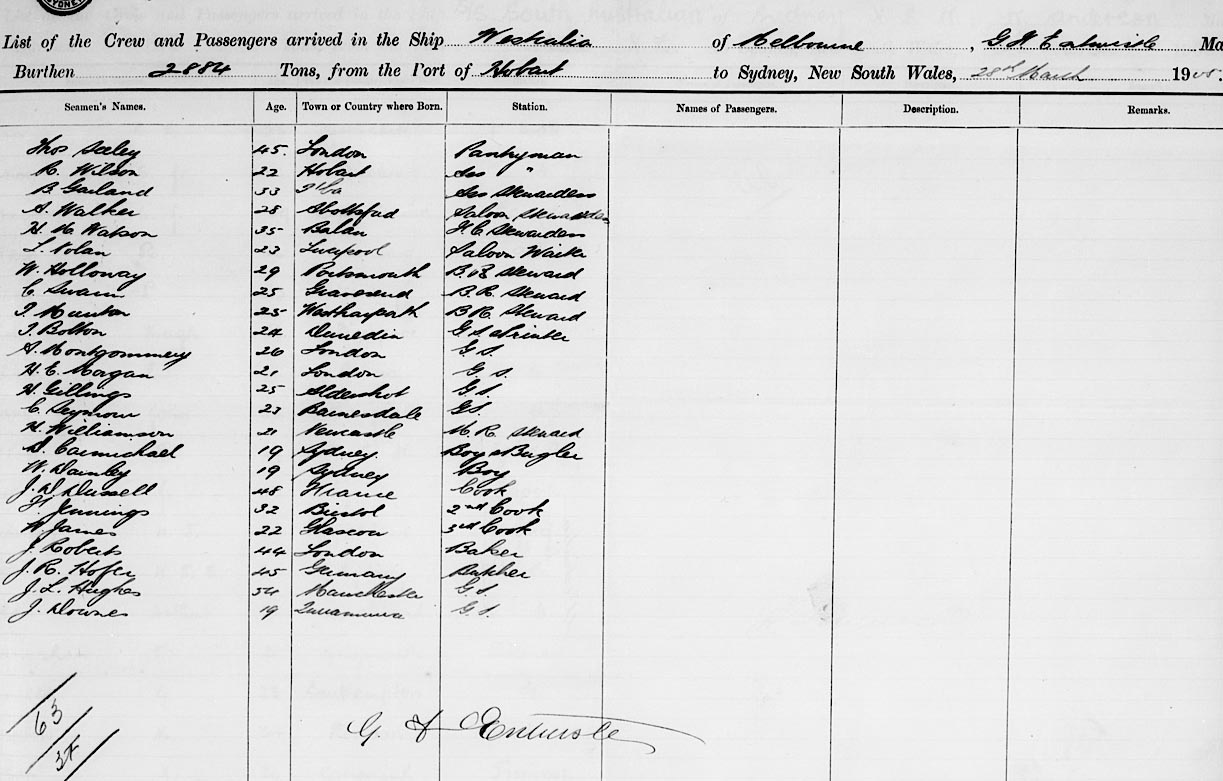 SYDNEY
List of the Crew and Passengers arrived in the Ship Westralia of Melbourne, G. F. Entwistle Ma
Burthen 2884 Tons, from the Port of Hobart to Sydney, New South Wales, 28th March 190
Seamen's Names. Age. Town or Country where Born. Station. Names of Passengers. Description. Remarks.
Thos Seeley 45. London Pantryman
R. Wilson 22 Hobart Ass "
B Garland 33 Ass Stewardess
A. Walker 28 Abottsford Saloon Stewardess
H. M. Watson 35 Balan F. C. Stewardess
Nolan 23 Liverpool Saloon Waiter
W. Holloway 29 Portsmouth B. & B Steward
C. Swain 25 Gravesend B. R. Steward
Munton 25 B R. Steward
T. Bolton 24 Dunedin G S & Printer
A. Montgommery 26 London G. S.
H. C. Morgan 21 London G. S.
H. Gillings 25 Aldershot G S.
C. Seymour 23 Bairnesdale G S.
H. Williamson 21 Newcastle M. R. Steward
D. Carmichael 19 Sydney. Boy & Bugler
W. Dainley 19 Sydney Boy
J. D. Dussell 48 France Cook
Jennings 32 Bristol 2nd Cook
W James 22 Glascow 3rd Cook
J. Roberts 44 London Baker
J. R. Hofer 45 Germany Butcher
J. L. Hughes 54 Manchester G. S.
J. Downes 19 G. S.
63
G. F Entwistle